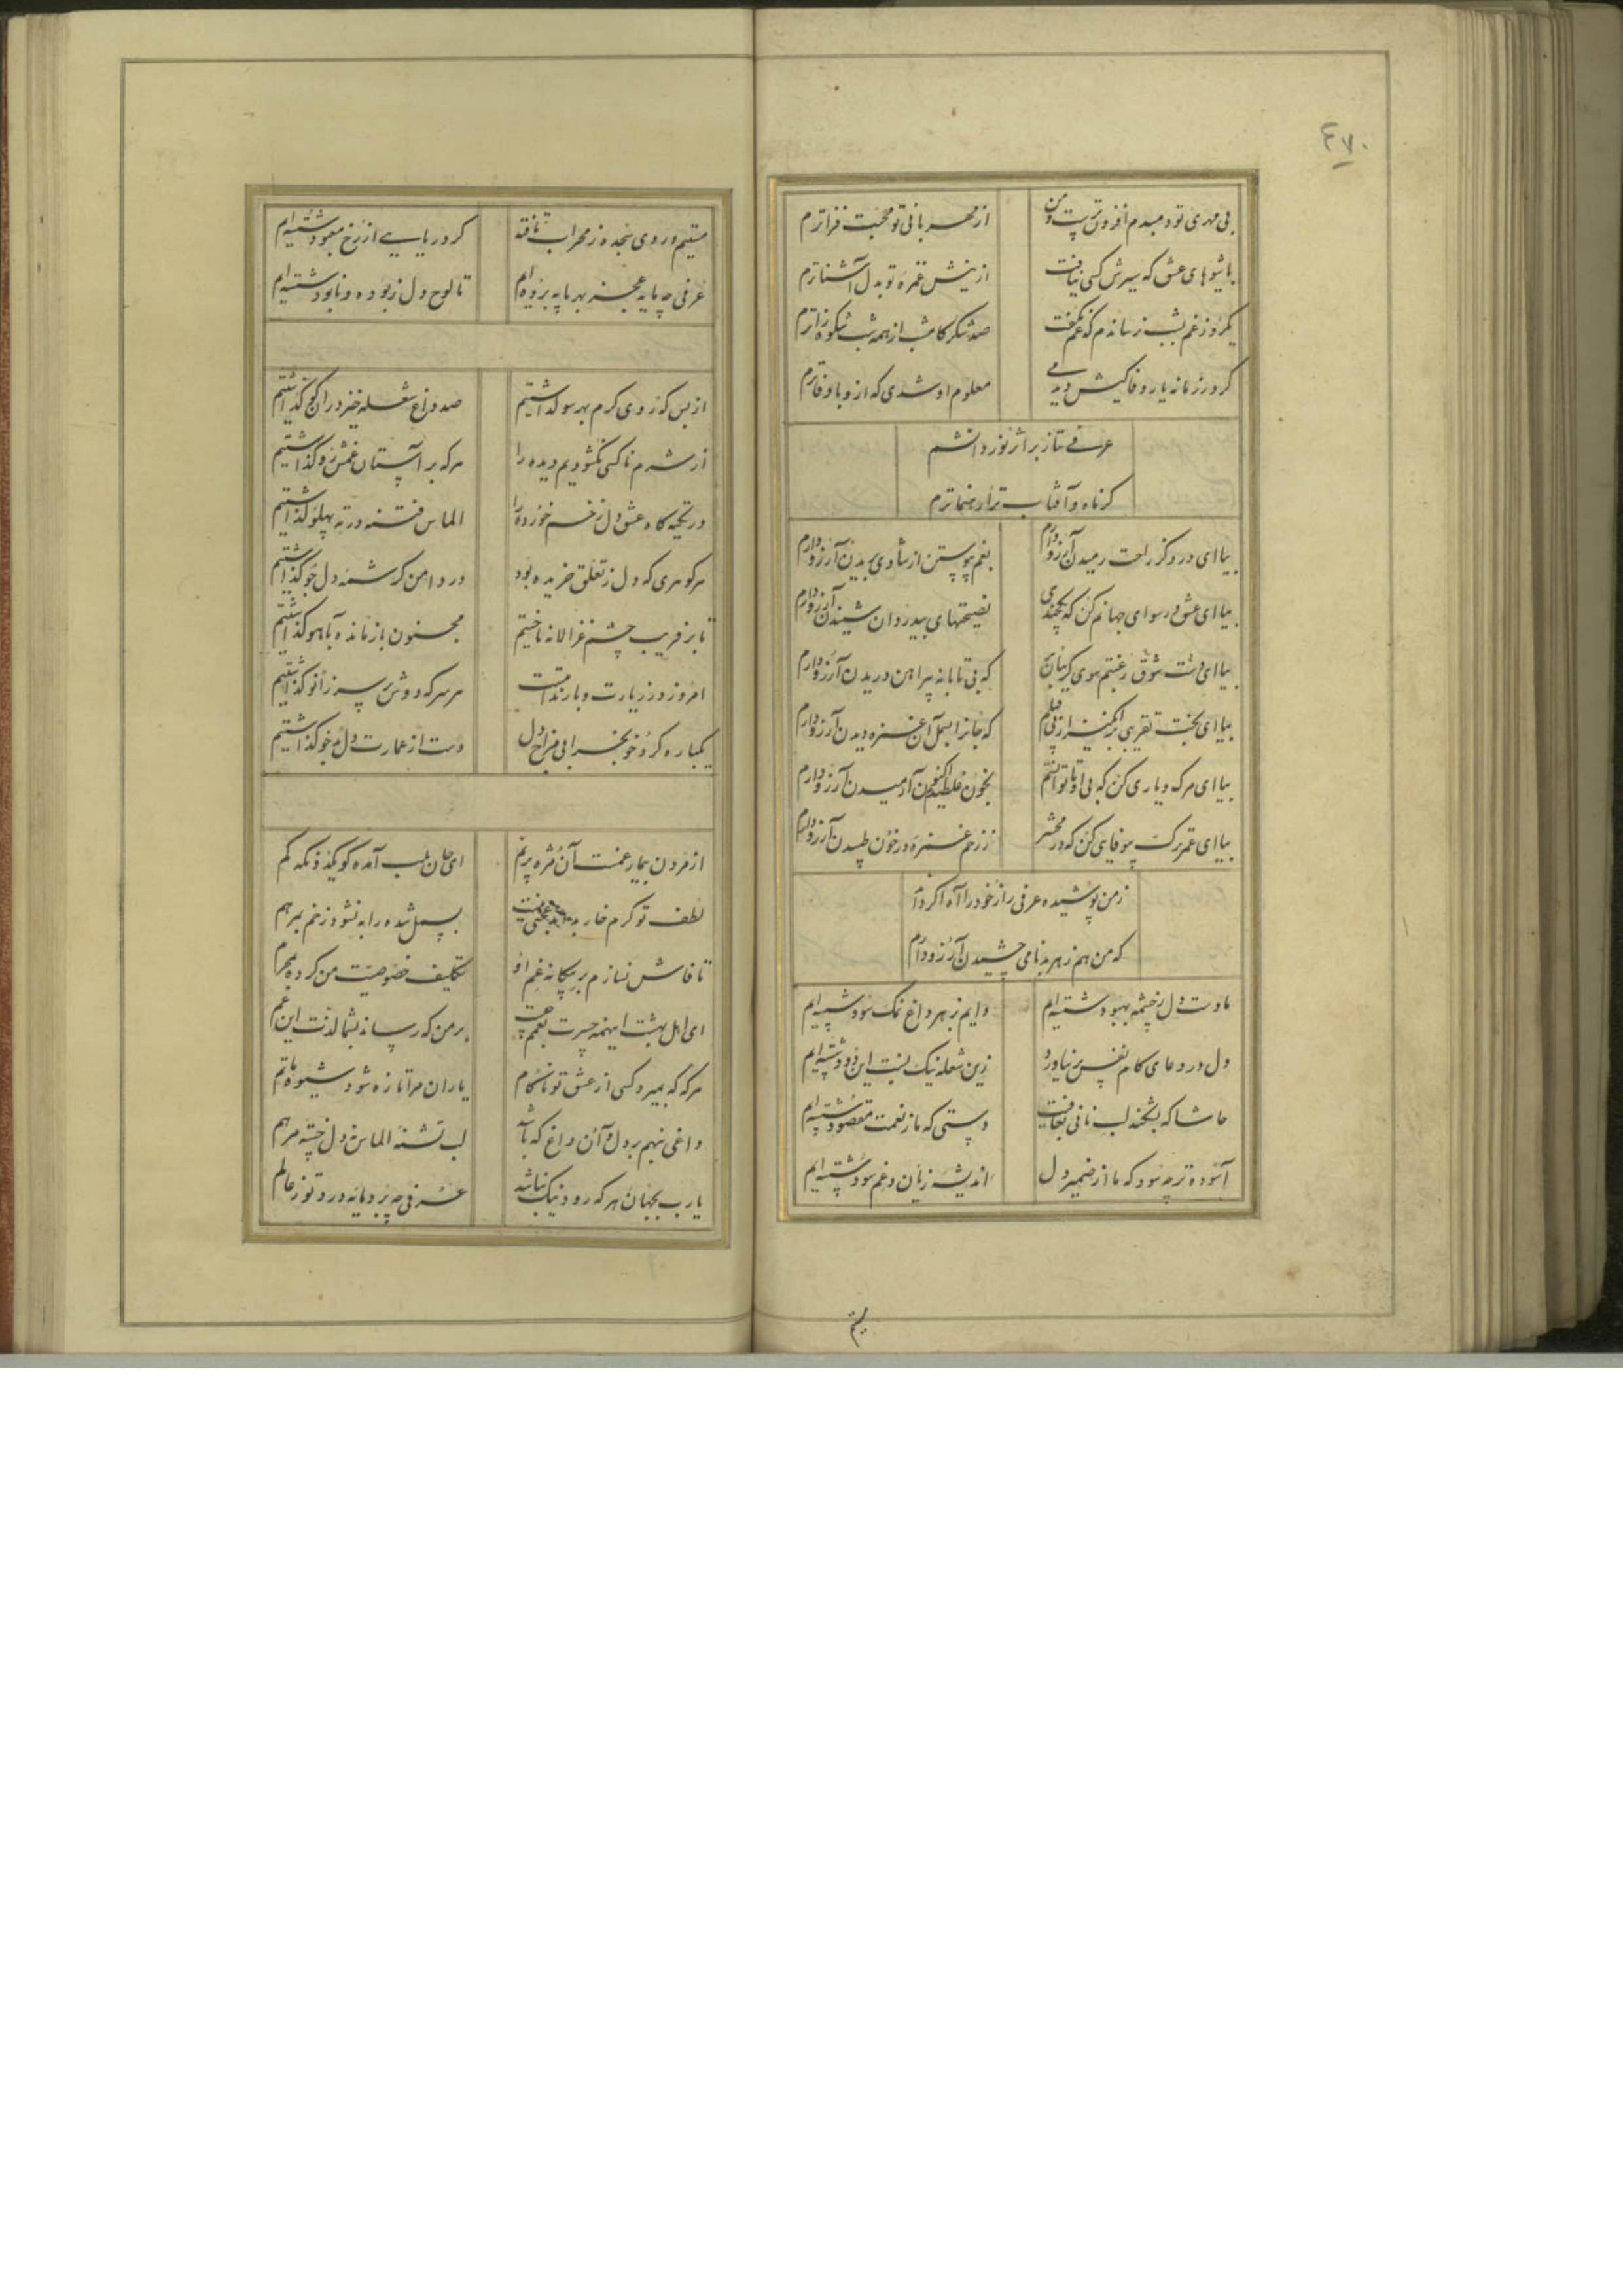 ۴۷۰
بی مهری تو دمبدم افزون تربیت و من
از مهربانی تو محبت فزاترم
با شیوهای عشق که سیرش کسی نیافت
از نیش غمزه تو بدل آشناترم
یکروز غم بشب نرساندم که غم نگفت
صد شکر کامشب از همه شب شکوه زاترم
کرد در زمانه یار وفاکیش دیدمی
معلوم او شدی که ازو باوفاترم
عرفی متاز بر اثر نور دانشم
کز ماه و آفتاب ترا رهنماترم
بیا ای درد کز راحت رمیدن آرزو دارم
بغم پیوستن از شادی بریدن آرزو دارم
بیا ای عشق و رسوای جهانم کن که یکچندی
نصیحتهای بیدردان شنیدن آرزو دارم
بیا ای دست شوق رغبتم سوی کریبان بر
که بی تابانه پیراهن دریدن آرزو دارم
بیا ای بخت تقریبی برانگیز از پی قتلم
که جانرا بسمل آن غمزه دیدن آرزو دارم
بیا ای مرک و یاری کن که بی او تا توانستم
بخون غلطیدم اکنون آرمیدن آرزو دارم
بیا ای عمر ترک بیوفایی کن که در محشر
ز زخم غمزه در خون طپیدن آرزو دارم
ز من پوشیده عرفی راز خود را آه اکر داند
که من هم زهر بدنامی چشیدن آرزو دارم
ما دست دل ز چشمه بهبود شسته‌ایم
دایم ز بهر داغ نمک سود شسته‌ایم
دل در دعای کام نفس بر نیاورد
زین شعله نیک نیست این دود شسته‌ایم
حاشا که بشکند لب نانی بعافیت
دستی که ما ز نعمت مقصود شسته‌ایم
آسوده تر چه سود که ما از ضمیر دل
اندیشه زیان و غم سود شسته‌ایم
مستیم
مستیم و روی سجده ز محراب تافته
کرد ریایی از رخ معبود شسته‌ایم
عرفی چه مایه عجز بهر مایه برده‌ام
تا لوح دل ز بوده و نابود شسته‌ایم
از بس که روی کرم بهر سو گذاشتیم
صد داغ شعله خیز در آن کو گذاشتیم
از شرم ناکسی نکشودیم دیده را
هرکه بر آستان غمش رو گذاشتیم
در تکیه کاه عشق دل زخم خورده را
الماس فتنه در ته پهلو گذاشتیم
هر گوهری که دل ز تعلق خریده بود
در دامن کرشمه دل جو گذاشتیم
تا بر فریب چشم غزالانه تاختیم
مجنون باز مانده آهو گذاشتیم
امروز در زیارت و بار ندامتست
هر سر که دوش بر سر زانو گذاشتیم
یکباره کرد خو بخرابی مزاج دل
دست از عمارت دل بدخو گذاشتیم
از مردن بیمار غمت آن مژه پرنم
ای جان بلب آمده کو یکدو نکه کم
لطف تو کرم خار
بسمل شده را به نشود زخم بمرهم
تا فاش نسازم بر بیکانه غم او
تکلیف خصوصیت من کرده بمحرم
ای اهل بهشت اینهمه حسرت بنعم چیست
بر من که رساند بشما لذت این غم
هرکه که بمیرد کسی از عشق تو ناکام
یاران مرا تازه شود شیوه ماتم
داغی نهم بر دل و آن داغ که باشد
لب تشنه الماس دل خسته مرهم
یارب بجهان هر که رود نیک نباشد
عرفی چه برد مایه درد تو ز عالم